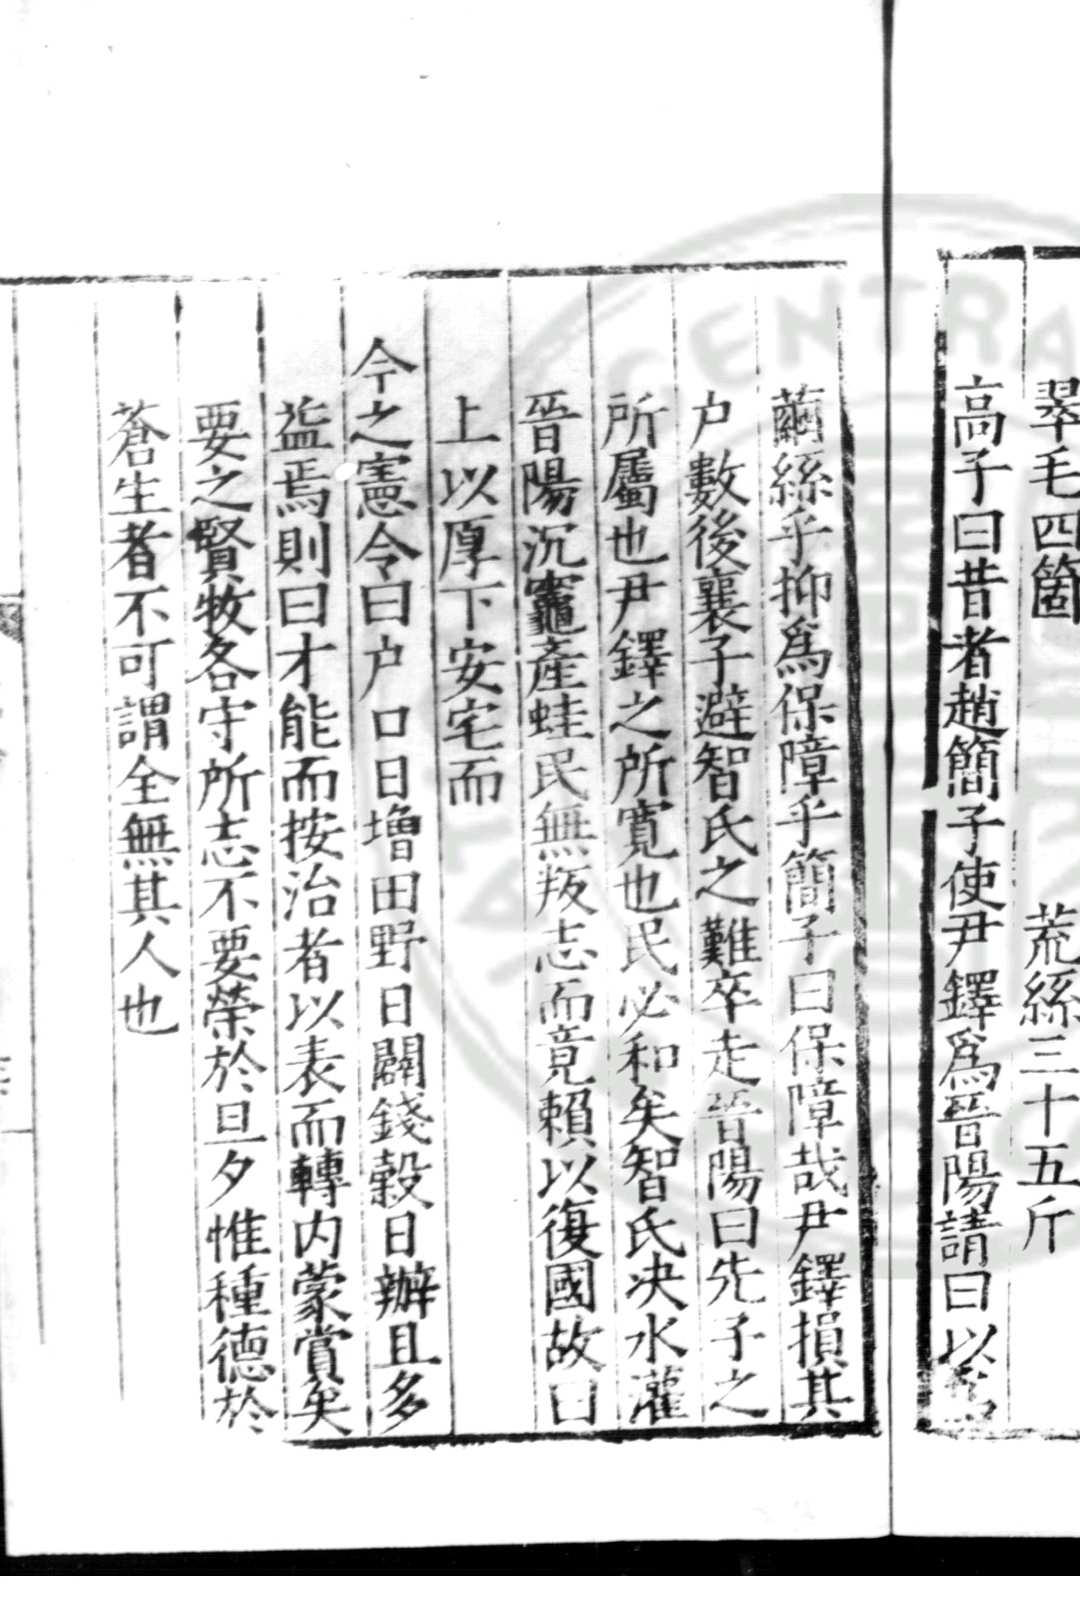 翠毛四箇　荒絲三十五斤
高子曰昔者趙簡子使尹鐸爲晉陽請曰以爲
繭絲乎抑爲保障乎簡子曰保障哉尹鐸損其
户數後襄子避智氏之難卒走晉陽曰先子之
所屬也尹鐸之所寛也民必和矣智氏决水灌
晉陽沉竈產蛙民無叛志而竟賴以復國故曰
上以厚下安宅而
今之憲令曰户口日增田野日闢錢榖日辦且多
益焉則曰才能而按治者以表而轉内蒙賞矣
要之賢牧各守所志不要榮於旦夕惟種德於
蒼生者不可謂全無其人也
CENTRA